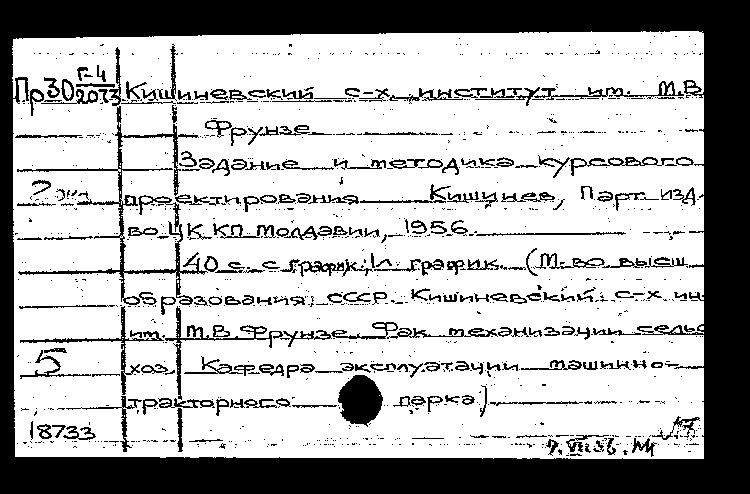 Пр30 Г-4
2073
Кишиневский с-х. институт им. М.В.
Фрунзе
Задание и методика курсового
2 экз. проектирования Кишинев, Парт. изд-
во ЦК КП Молдавии, 1956.
40 с. с график.; 1 л. график. (М-во высш.
образования СССР. Кишиневский с-х ин-
им. М.В. Фрунзе. Фак механизации сельс
5 хоз. Кафедра эксплуатации машинно-
тракторного парка)
18733